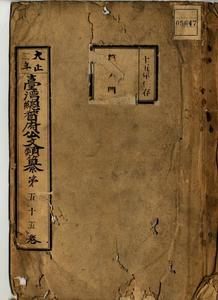 大正
三年
臺灣總督府公文類纂
第五十五卷
十五年保存
05647